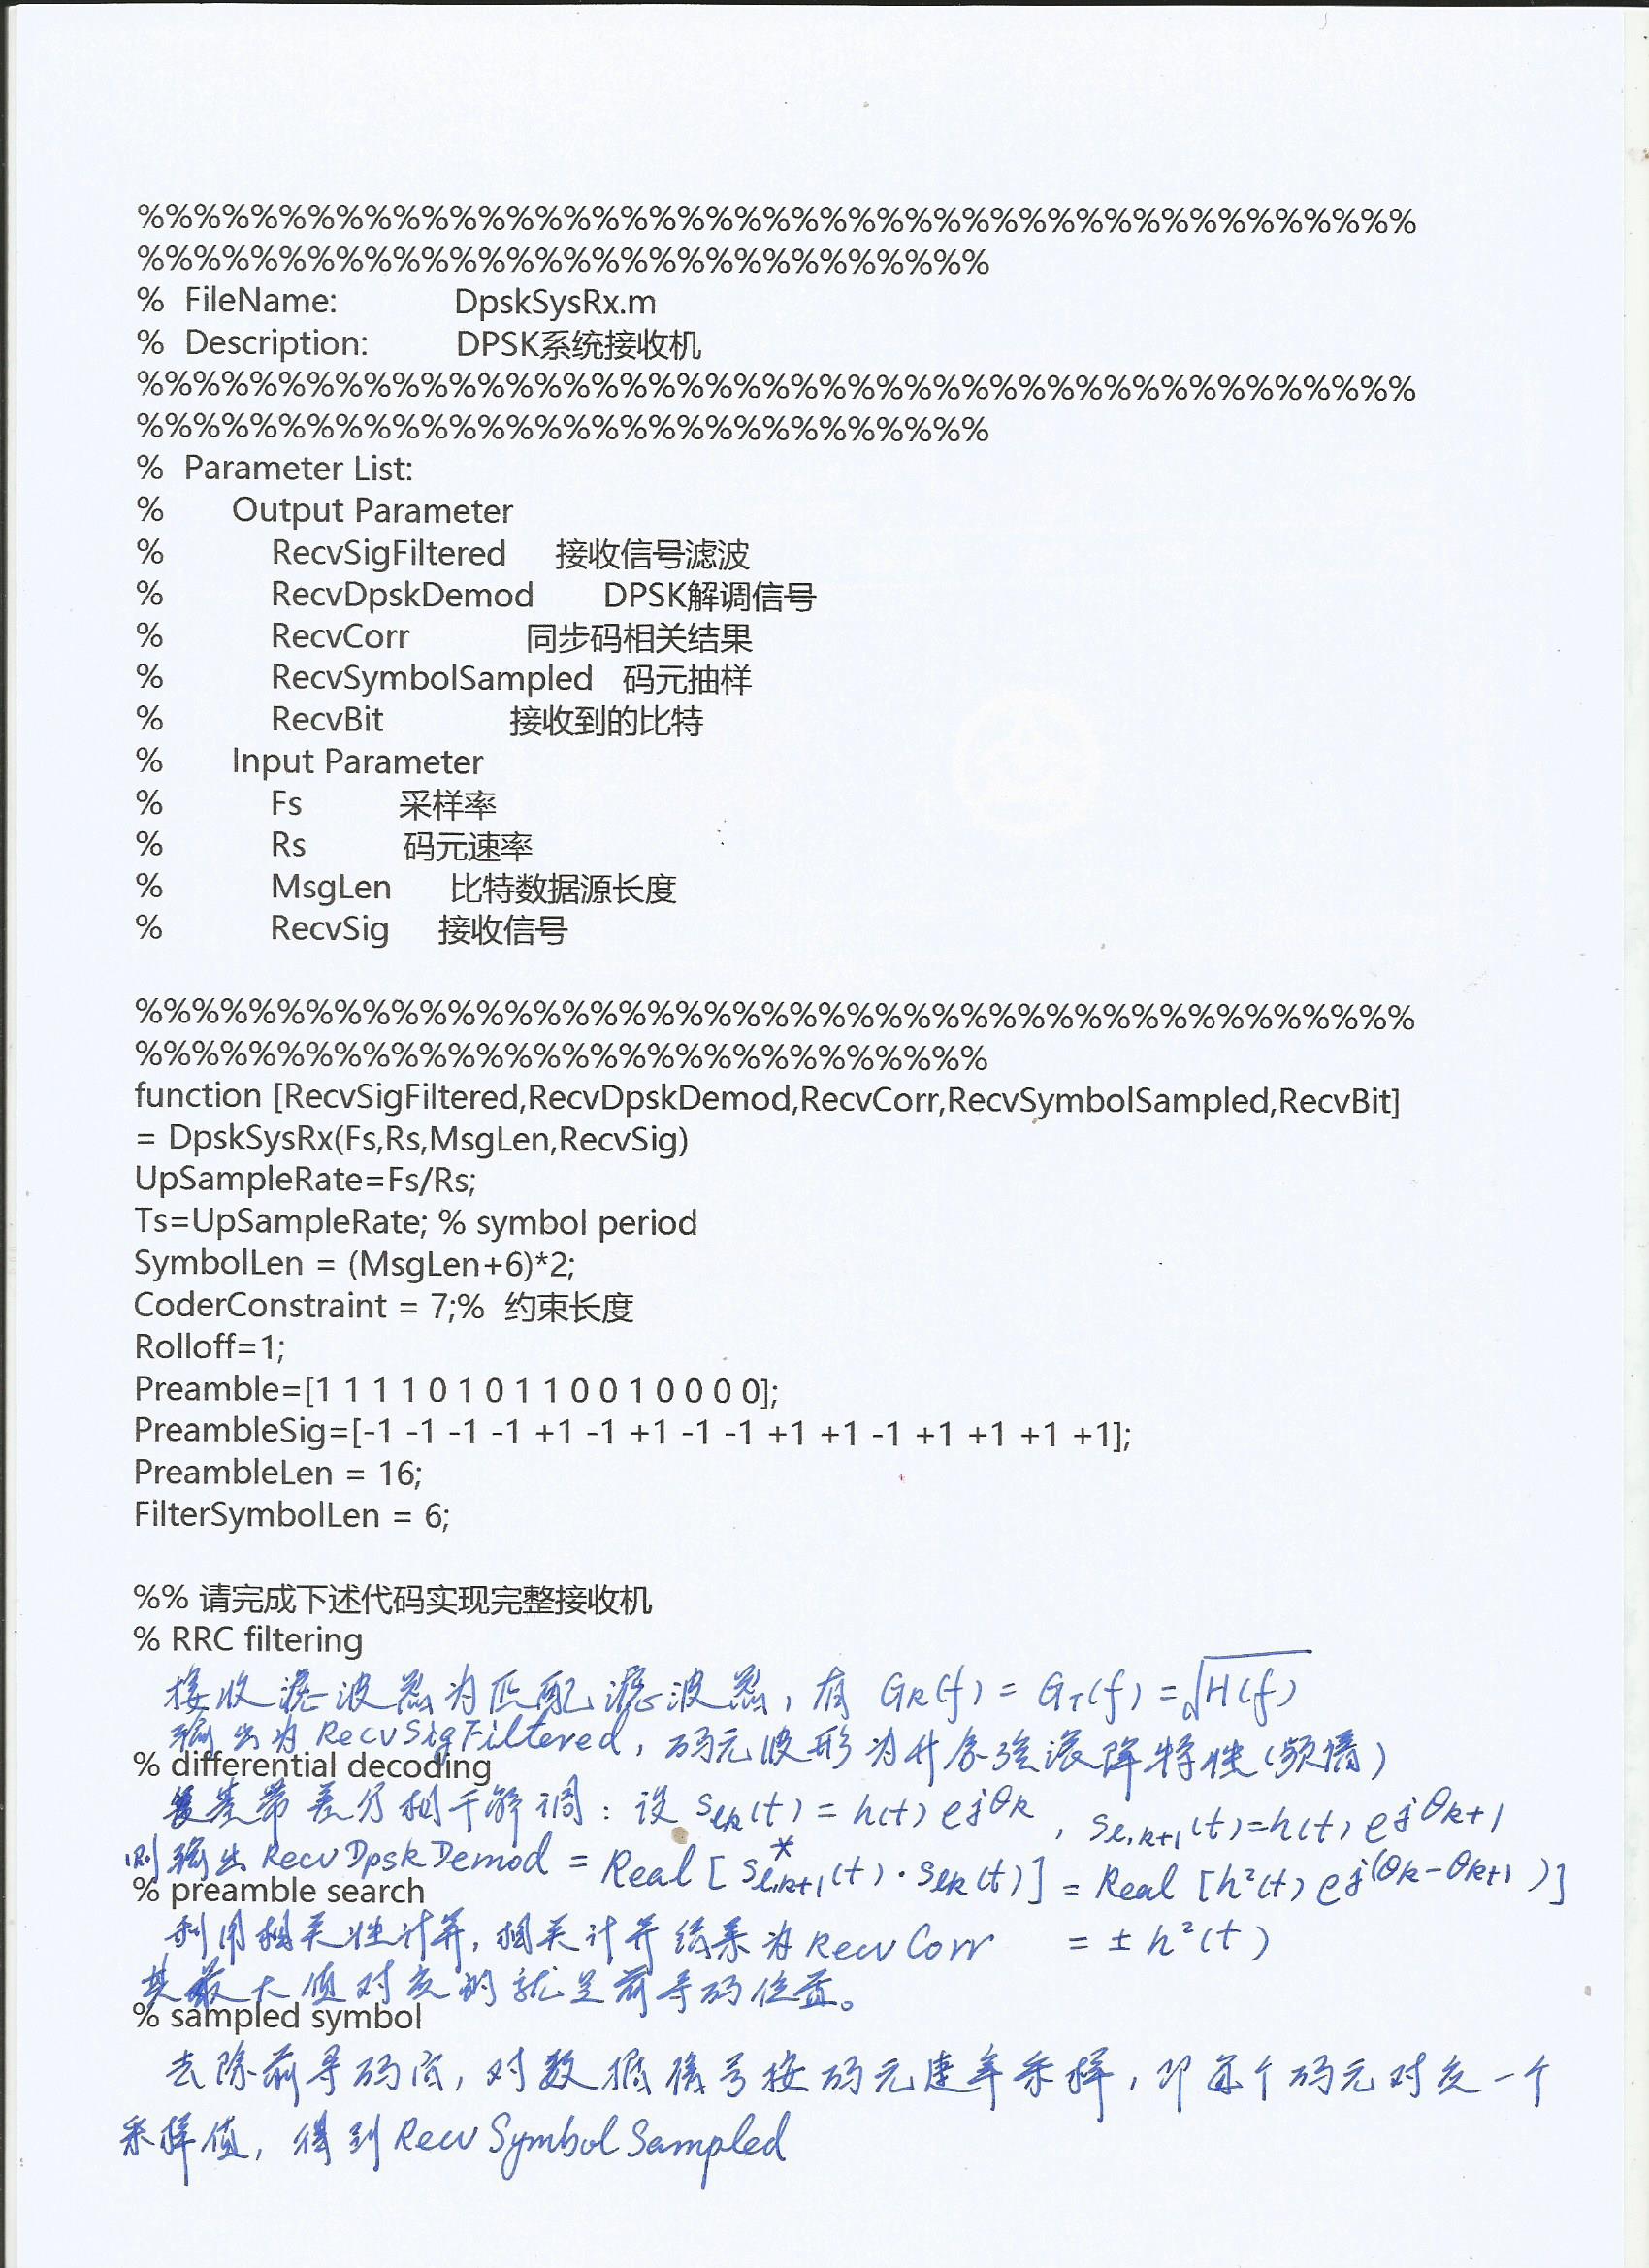 %%%%%%%%%%%%%%%%%%%%%%%%%%%%%%%%%%%%%%%%%%%%%
%%%%%%%%%%%%%%%%%%%%%%%%%%%%%%
% FileName: DpskSysRx.m
% Description: DPSK系统接收机
%%%%%%%%%%%%%%%%%%%%%%%%%%%%%%%%%%%%%%%%%%%%%
%%%%%%%%%%%%%%%%%%%%%%%%%%%%%%
% Parameter List:
% Output Parameter
% RecvSigFiltered 接收信号滤波
% RecvDpskDemod DPSK解调信号
% RecvCorr 同步码相关结果
% RecvSymbolSampled 码元抽样
% RecvBit 接收到的比特
% Input Parameter
% Fs 采样率
% Rs 码元速率
% MsgLen 比特数据源长度
% RecvSig 接收信号
%%%%%%%%%%%%%%%%%%%%%%%%%%%%%%%%%%%%%%%%%%%%%
%%%%%%%%%%%%%%%%%%%%%%%%%%%%%%
function [RecvSigFiltered,RecvDpskDemod,RecvCorr,RecvSymbolSampled,RecvBit]
= DpskSysRx(Fs,Rs,MsgLen,RecvSig)
UpSampleRate=Fs/Rs;
Ts=UpSampleRate; % symbol period
SymbolLen = (MsgLen+6)*2;
CoderConstraint = 7;% 约束长度
Rolloff=1;
Preamble=[1 1 1 1 0 1 0 1 1 0 0 1 0 0 0 0];
PreambleSig=[-1 -1 -1 -1 +1 -1 +1 -1 -1 +1 +1 -1 +1 +1 +1 +1];
PreambleLen = 16;
FilterSymbolLen = 6;
%% 请完成下述代码实现完整接收机
% RRC filtering
接收滤波器为匹配滤波器, 有 G_R(f) = G_T(f) = √H(f)
输出为RecvSigFiltered, 码元波形为升余弦滚降特性(频谱)
% differential decoding
复基带差分相干解调: 设 s_lk(t) = h(t) e^jθk , s_l,k+1(t)=h(t) e^jθk+1
则输出 RecvDpskDemod = Real [ s*_l,k+1(t)·s_lk(t)] = Real [h²(t) e^j(θk-θk+1)]
% preamble search
利用相关性计算, 相关计算结果为 RecvCorr = ± h²(t)
其最大值对应的就是前导码位置。
% sampled symbol
去除前导码后, 对数据信号按码元速率采样, 即每个码元对应一个
采样值, 得到 RecvSymbolSampled